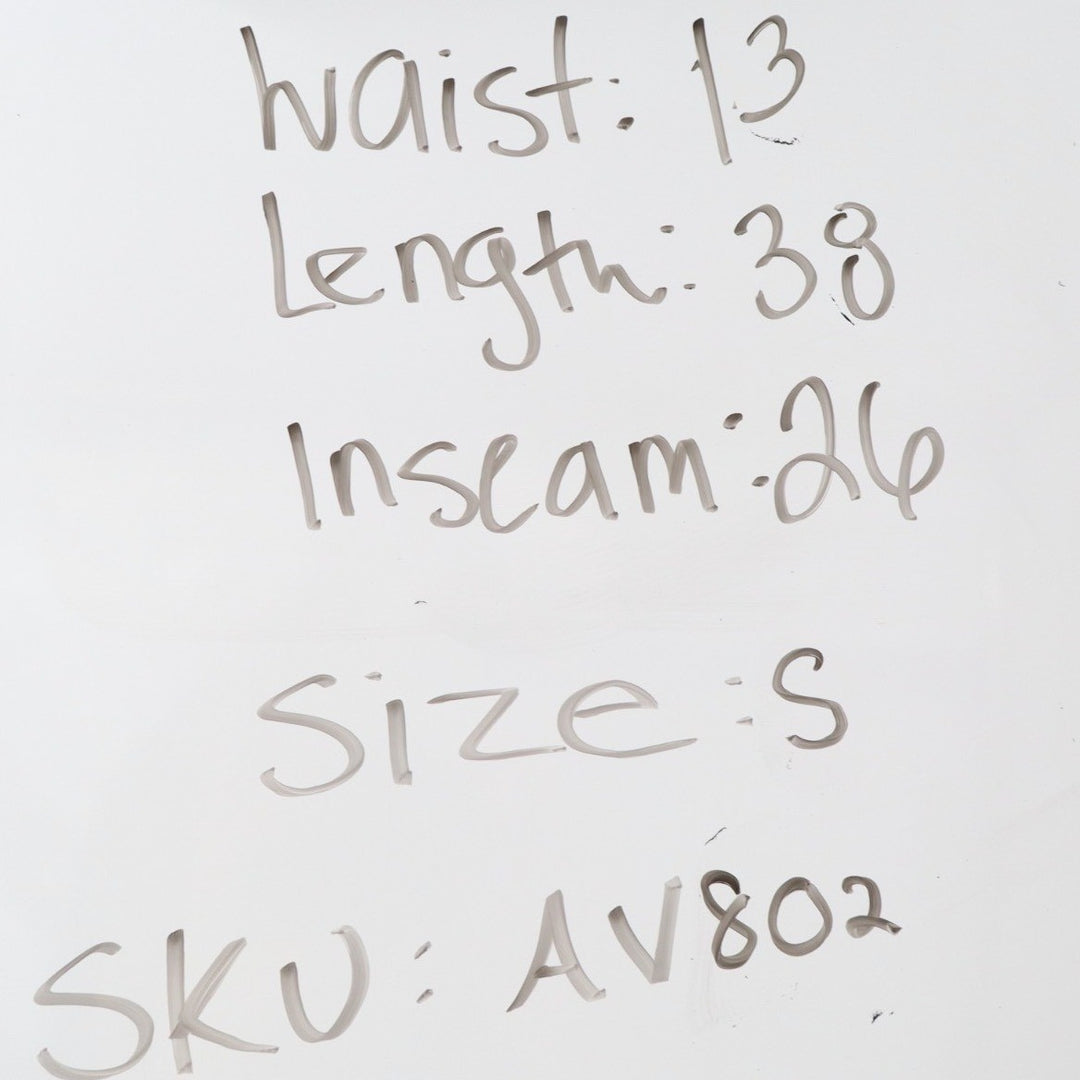 Waist: 13
Length: 38
Inseam: 26
Size: S
SKU: AV802